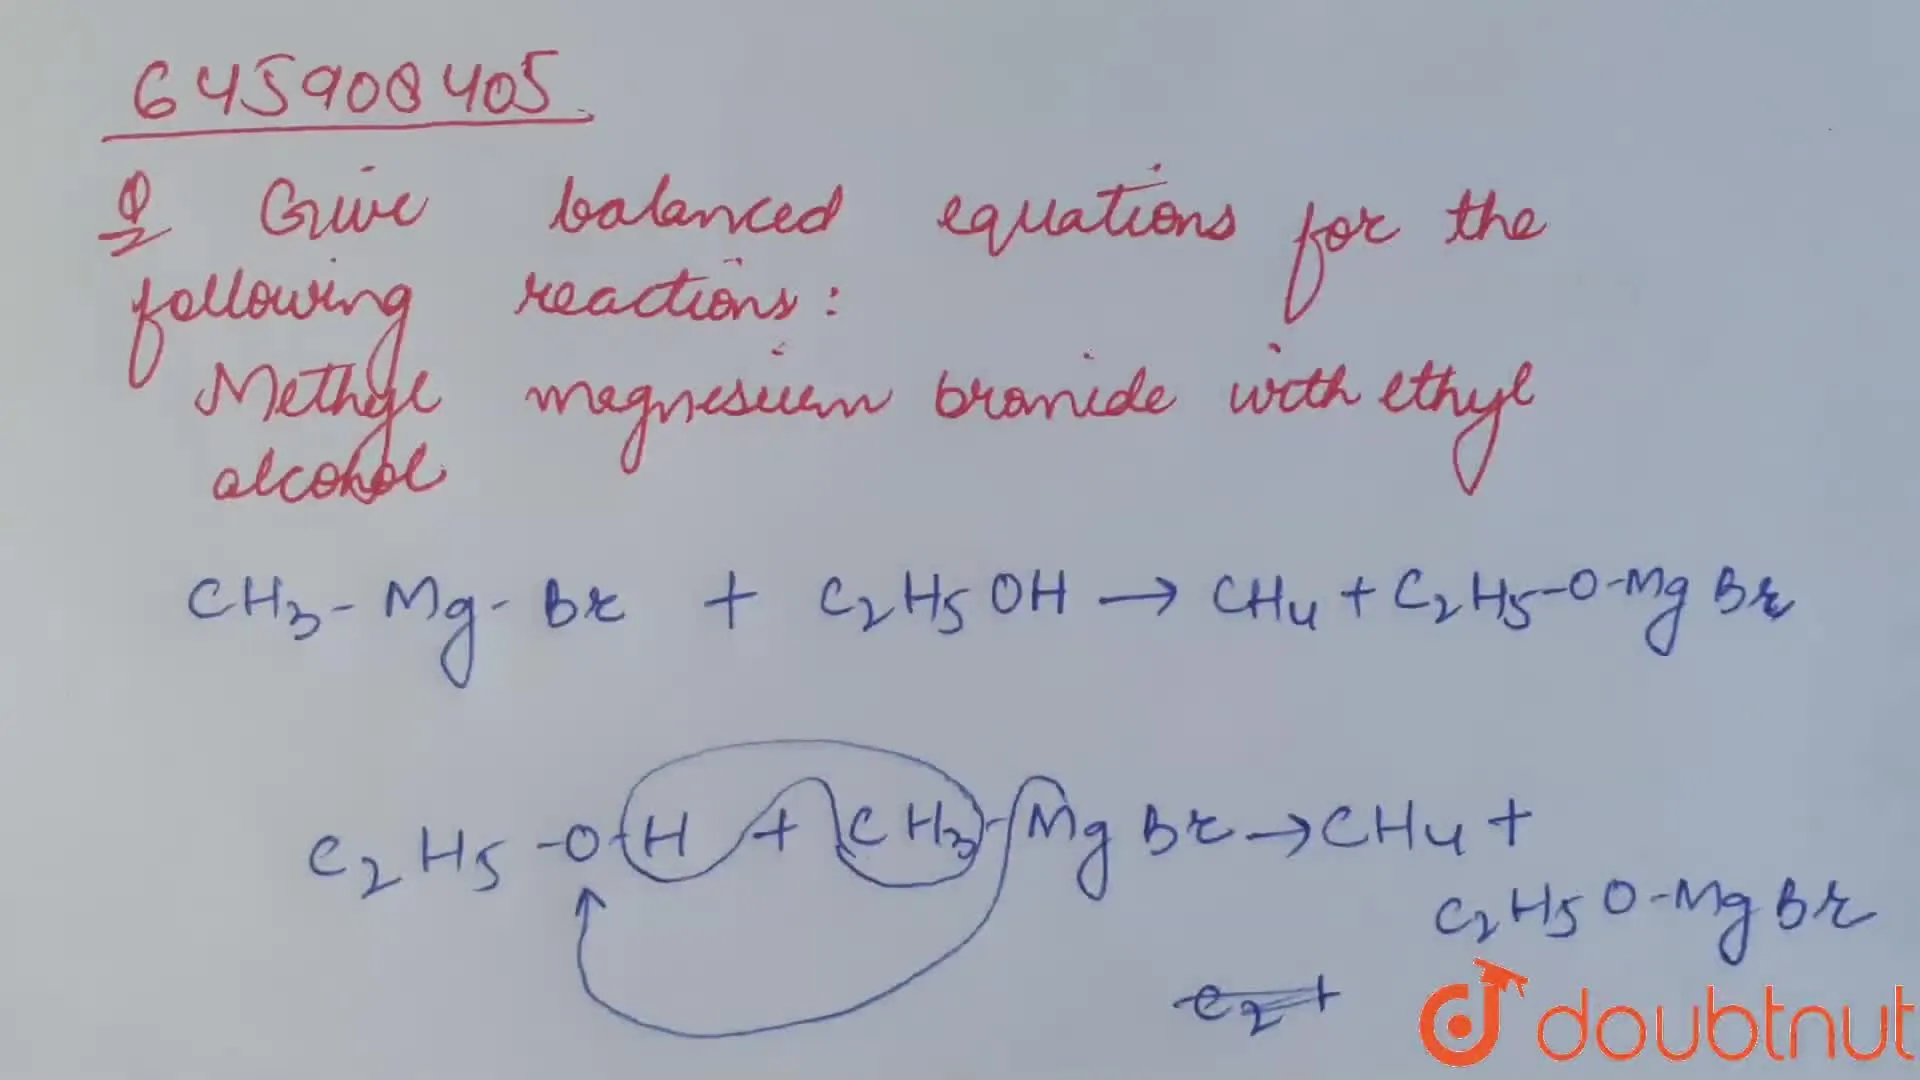 645908405
Q Give balanced equations for the
following reactions:
Methyl magnesium bromide with ethyl
alcohol
CH3-Mg-Br + C2H5OH → CH4 + C2H5-O-MgBr
C2H5-O-H + CH3-MgBr → CH4 +
C2H5O-MgBr
C2+
doubtnut